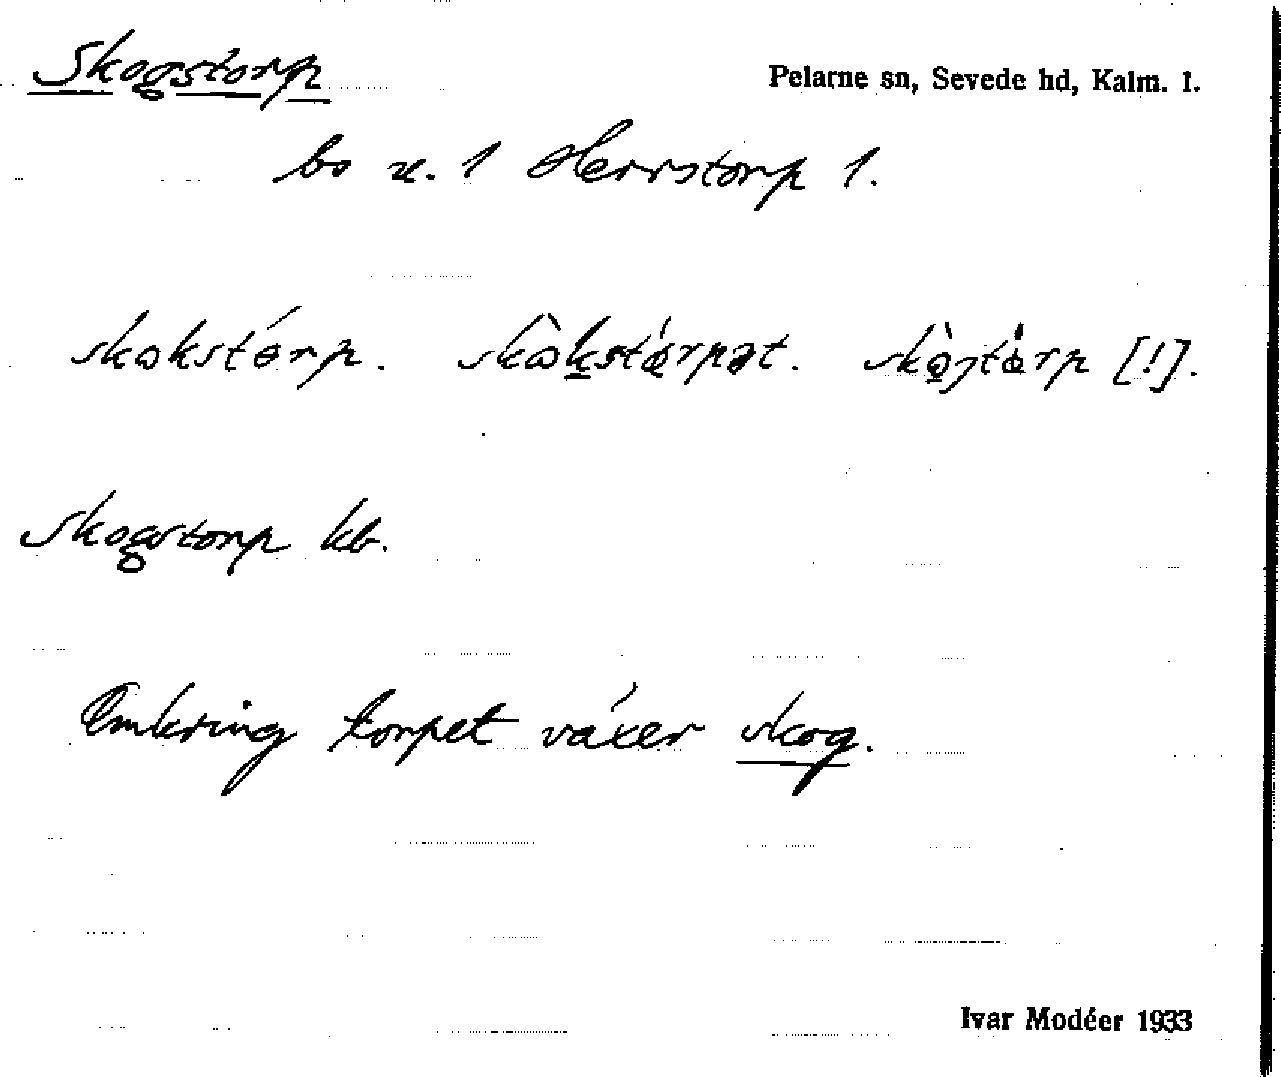 Skogstorp
Pelarne sn, Sevede hd, Kalm. l.
bo u. 1 Herrstorp 1.
skokstórp. skò̀kstórpət. skòjtórp [!].
Skogstorp kb.
Omkring torpet växer skog.
Ivar Modéer 1933